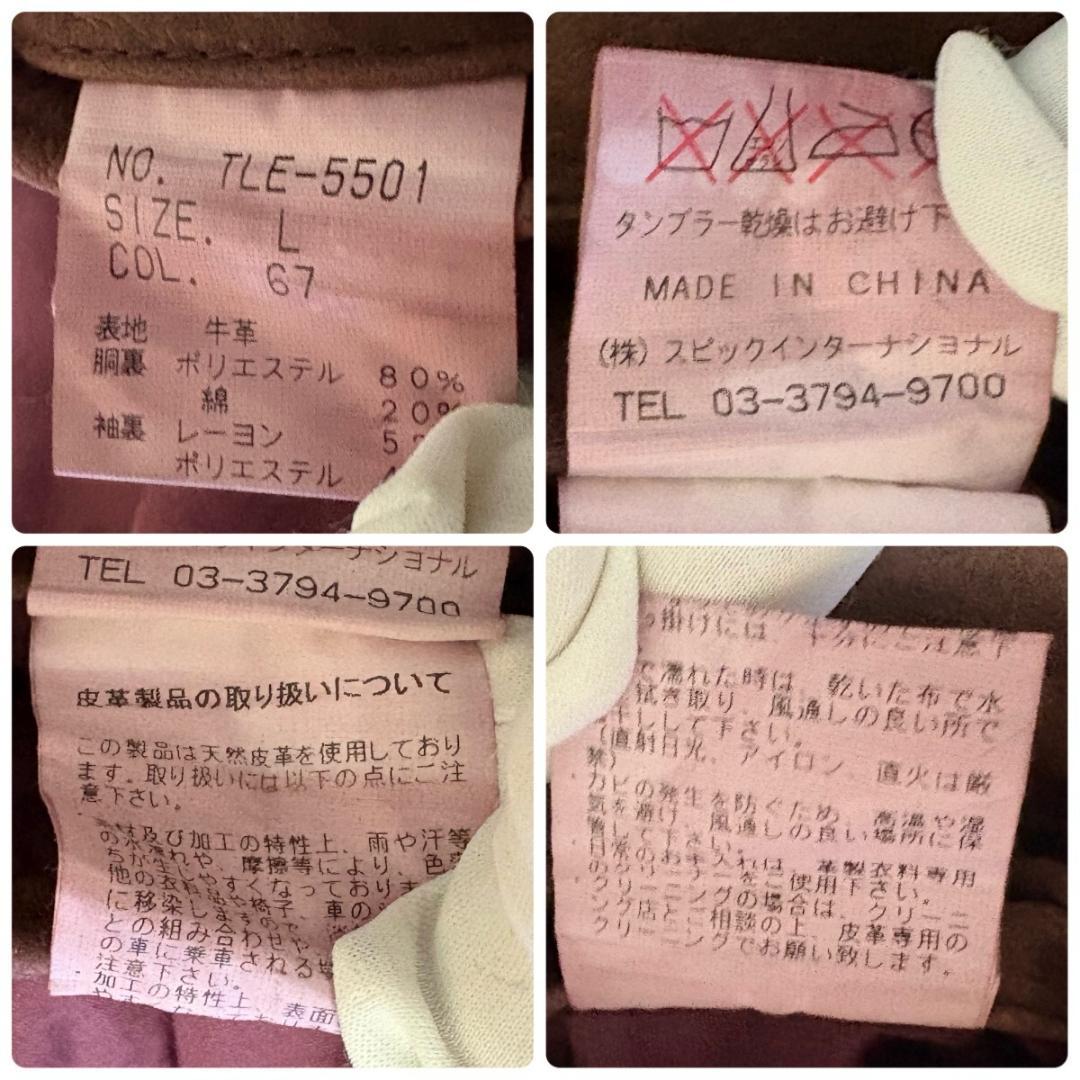 NO. TLE-5501
SIZE. L
COL. 67
表地 牛革
胴裏 ポリエステル 80%
綿 20%
袖裏 レーヨン 5
ポリエステル
タンブラー乾燥はお避け下
MADE IN CHINA
(株)スピックインターナショナル
TEL 03-3794-9700
インターナショナル
TEL 03-3794-9700
皮革製品の取り扱いについて
この製品は天然皮革を使用しており
ます。取り扱いには以下の点にご注
意下さい。
素材及び加工の特性上、雨や汗等
の水濡れや、摩擦等により、色
ちが生じやすくなっておりま
他の衣料や椅子、車の
に移染しますので、
との組み合わせや
の車に乗車される
注意下さい。
加工の特性上、表面
やすくなっており
掛けには、十分にご注意下
で濡れた時は、乾いた布で水
拭き取り、風通しの良い所で
干しして下さい。
(直射日光、アイロン、直火は厳
禁)
カビの発生を防ぐため、高温や湿
気を避け、風通しの良い場所に保
管して下さい。
日常のお手入れは、革製衣料専用
クリーナーをご使用下さい。
クリーニングの場合は、クリーニ
ング店とご相談の上、皮革専用の
クリーニングでお願い致します。